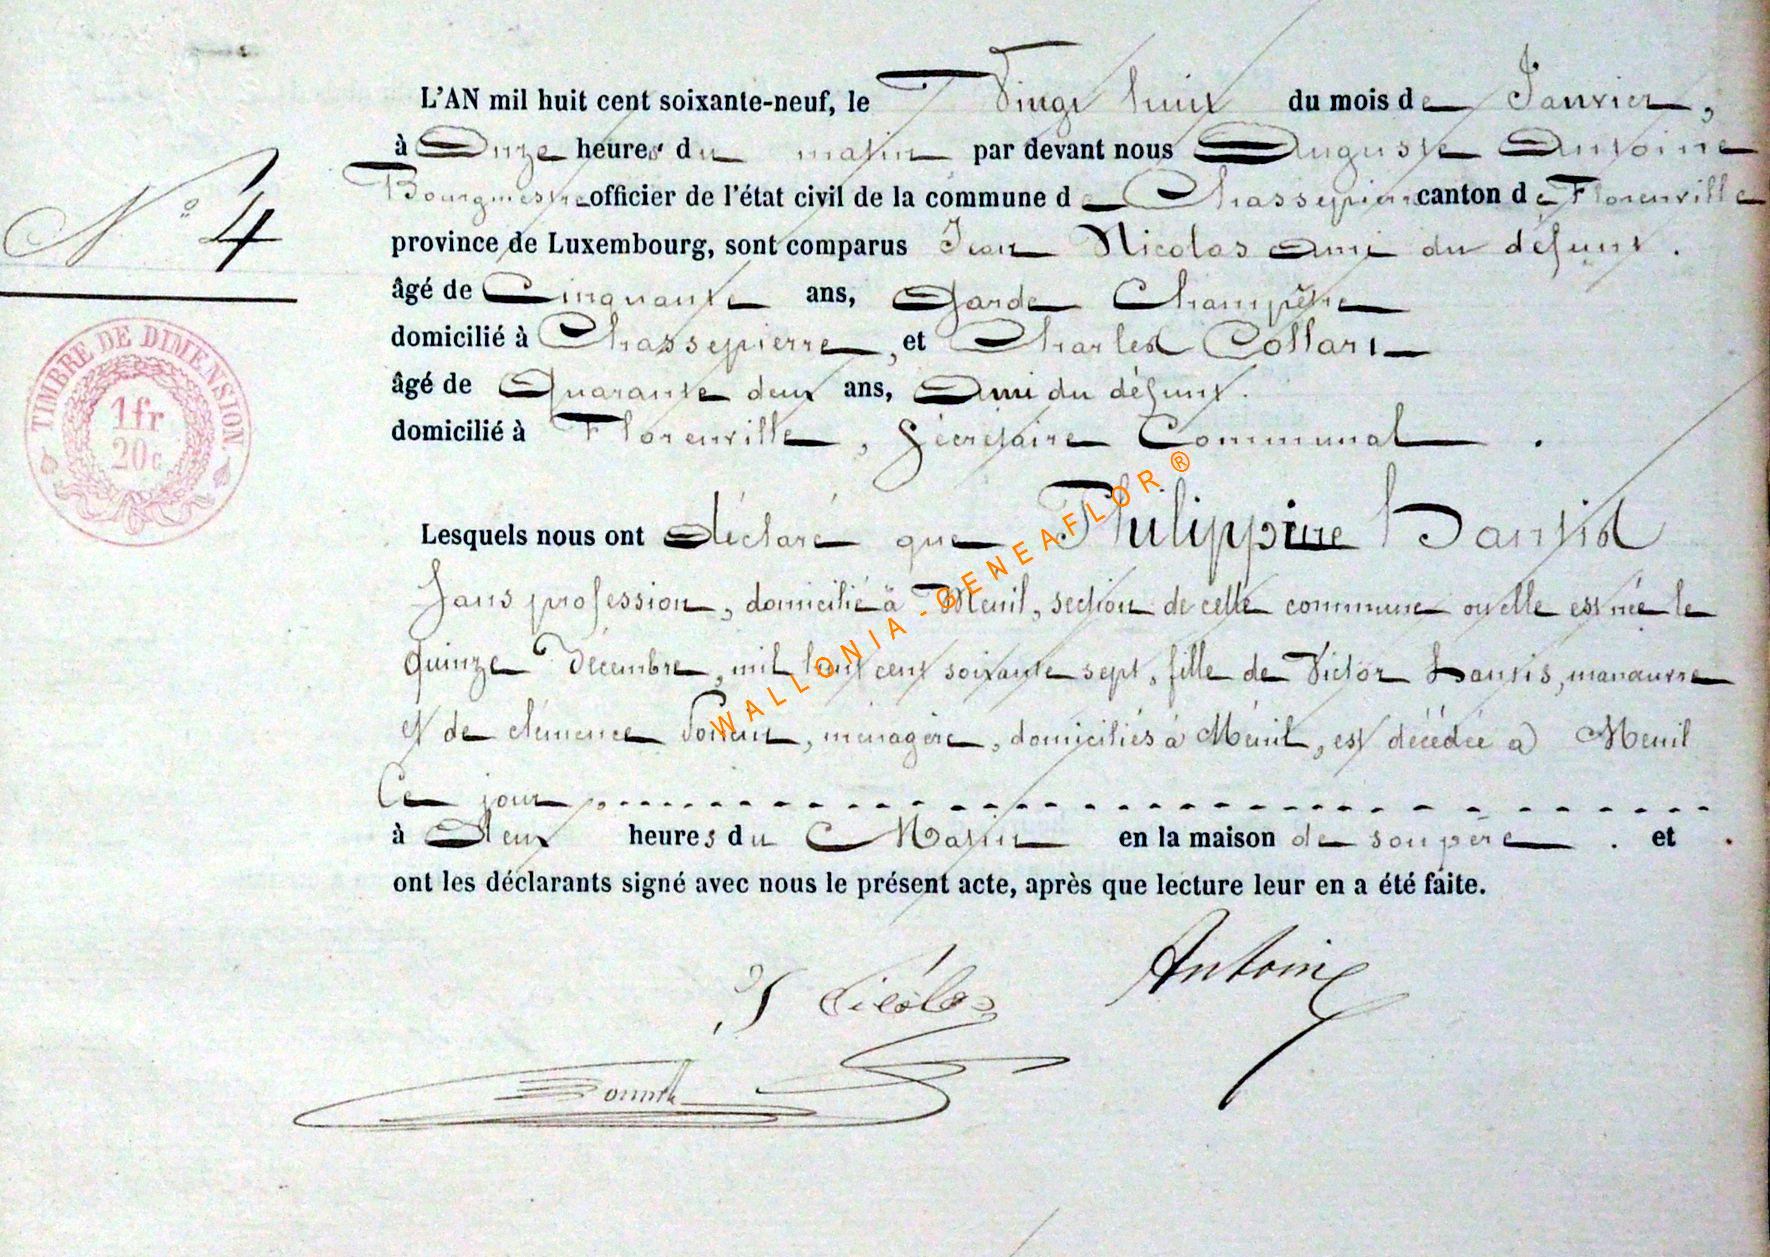 L'AN mil huit cent soixante-neuf, le Vingt huit du mois de Janvier,
à Onze heures du matin par devant nous Auguste Antoine
Bourgmestre officier de l'état civil de la commune de Chassepierre canton de Florenville
N° 4
province de Luxembourg, sont comparus Jean Nicolas ami du défunt.
âgé de Cinquante ans, Garde Champêtre
domicilié à Chassepierre, et Charles Collart
âgé de Quarante deux ans, Ami du défunt.
domicilié à Florenville, Sécrétaire Communal.
TIMBRE DE DIMENSION
1 fr
20 c.
Lesquels nous ont déclaré que Philippine
Sans profession, domicilié à Menil, section de cette commune ou elle est née le
quinze Décembre, mil huit cent soixante sept, fille de Victor manœuvre
et de clémence ménagère, domiciliés à Ménil, est décédée à Menil
Ce jour
à deux heures du Matin en la maison de son père. et
ont les déclarants signé avec nous le présent acte, après que lecture leur en a été faite.
WALLONIA - GENEAFLOR ®
J Nicolas
Antoine